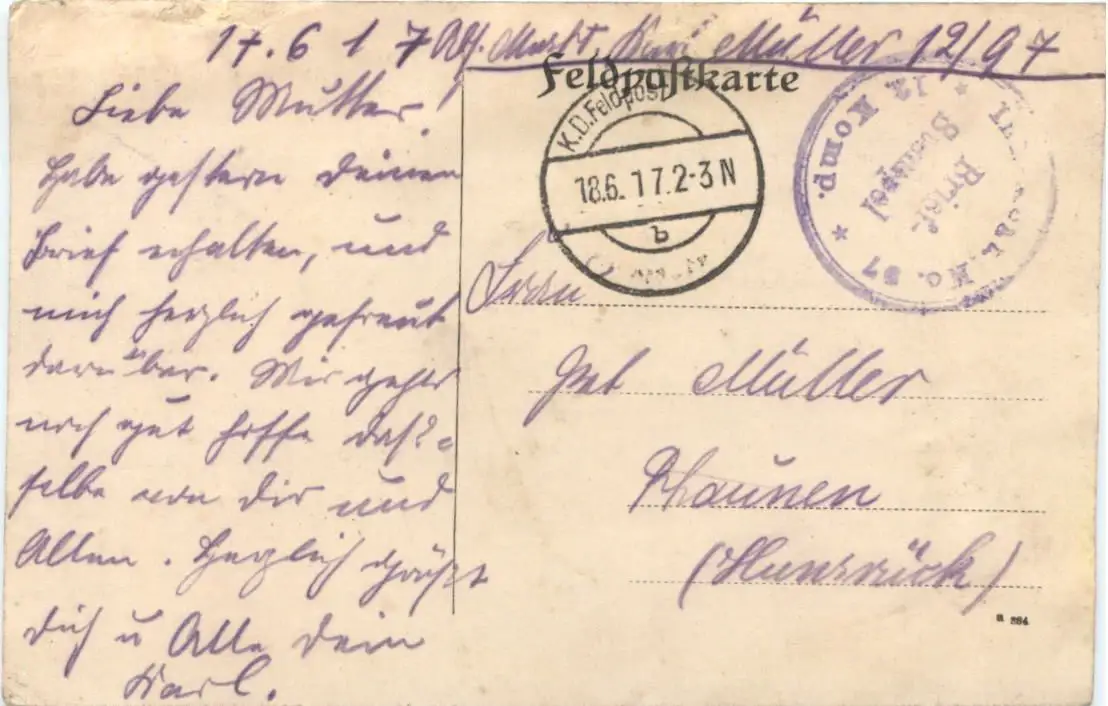 17. 6 1 7 Abs. Musk. Karl Müller 12/97
Feldpostkarte
Liebe Mutter.
Habe gestern deinen
Brief erhalten, und
mich herzlich gefreut
darüber. Mir gehts
noch gut hoffe das=
selbe von dir und
Allen. Herzlich grüßt
dich u Alle dein
Karl.
K.D.Feldpost
18.6.17.2-3N
b
12. Komp.
Brief-
Stempel
No. 97
Herrn
Müller
Rhaunen
(Hunsrück)